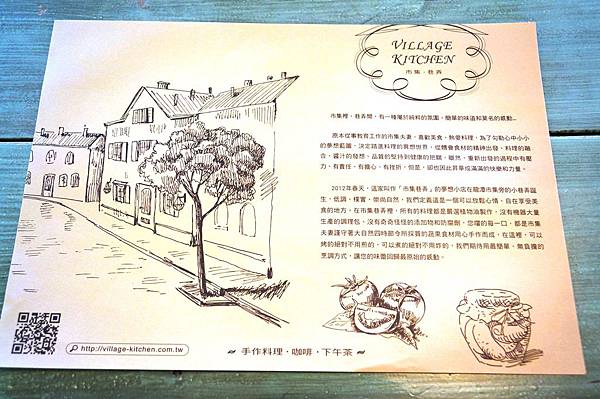 VILLAGE
KITCHEN
市集‧巷弄
市集裡、巷弄間，有一種屬於純粹的氛圍，簡單的味道和莫名的感動...
原本從事教育工作的市集夫妻，喜歡美食、熱愛料理，為了勾勒心中小小
的夢想藍圖，決定踏進料理的異想世界，從體會食材的精神出發，料理的融
合、醬汁的發想、品質的堅持到健康的把關，雖然，重新出發的過程中有壓
力、有責任、有擔心、有挫折，但是，卻也因此昇華成滿滿的快樂和力量。
2012年春天，這家叫作「市集巷弄」的夢想小店在龍潭市集旁的小巷弄誕
生，低調、樸實、崇尚自然，我們定義這是一個可以放鬆心情，自在享受美
食的地方，在市集巷弄裡，所有的料理都是嚴選植物油製作，沒有機器大量
生產的調理包，沒有奇奇怪怪的添加物和防腐劑，您嚐的每一口，都是市集
夫妻謹守著大自然四時節令所採買的蔬果食材用心手作而成，在這裡，可以
烤的絕對不用煎的、可以煮的絕對不用炸的，我們期待用最簡單、無負擔的
烹調方式，讓您的味蕾回歸最原始的感動。
http://village-kitchen.com.tw
手作料理‧咖啡‧下午茶